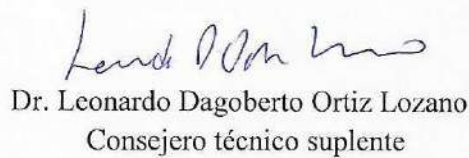 Dr. Leonardo Dagoberto Ortiz Lozano
Consejero técnico suplente